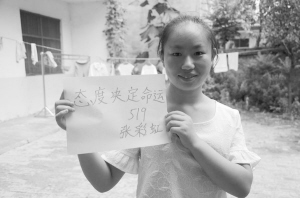 态度决定命运
519
张彩虹